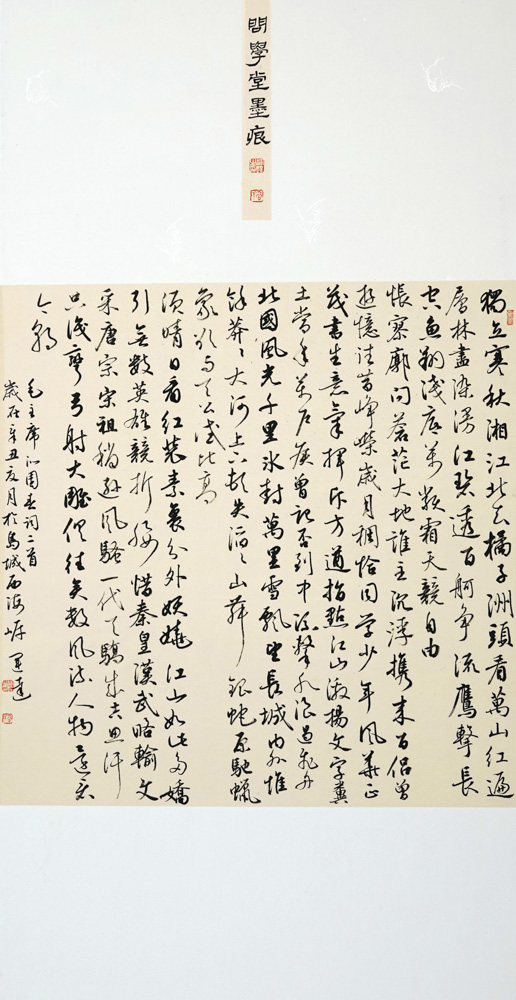 問學堂墨痕
獨立寒秋湘江北去橘子洲頭看萬山紅遍
層林盡染漫江碧透百舸爭流鷹擊長
空魚翔淺底萬類霜天競自由
悵寥廓問蒼茫大地誰主沉浮攜來百侶曾
遊憶往昔崢嶸歲月稠恰同學少年風華正
茂書生意氣揮斥方遒指點江山激揚文字糞
土當年萬戶侯曾記否到中流擊水浪遏飛舟
北國風光千里冰封萬里雪飄望長城內外惟
餘莽々大河上下頓失滔々山舞銀蛇原馳蠟
象欲與天公試比高
須晴日看紅裝素裹分外妖嬈江山如此多嬌
引無數英雄競折腰惜秦皇漢武略輸文
采唐宗宋祖稍遜風騷一代天驕成吉思汗
只識彎弓射大雕俱往矣數風流人物還看
今朝
毛主席沁園春詞二首
歲在辛丑夏月於島城西海岸運達